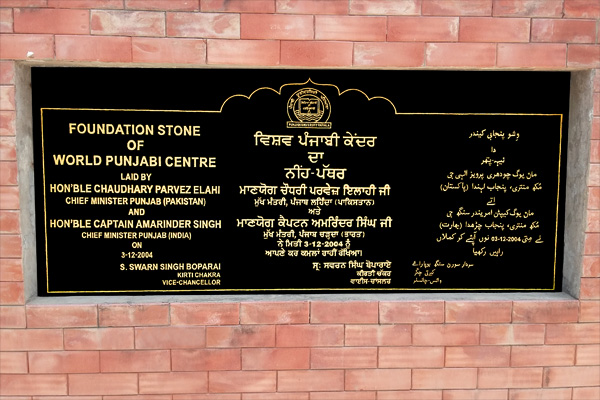 FOUNDATION STONE
OF
WORLD PUNJABI CENTRE
LAID BY
HON'BLE CHAUDHARY PARVEZ ELAHI
CHIEF MINISTER PUNJAB (PAKISTAN)
AND
HON'BLE CAPTAIN AMARINDER SINGH
CHIEF MINISTER PUNJAB (INDIA)
ON
3-12-2004
S. SWARN SINGH BOPARAI
KIRTI CHAKRA
VICE-CHANCELLOR
ਵਿਸ਼ਵ ਪੰਜਾਬੀ ਕੇਂਦਰ
ਦਾ
ਨੀਂਹ-ਪੱਥਰ
ਮਾਣਯੋਗ ਚੌਧਰੀ ਪਰਵੇਜ਼ ਇਲਾਹੀ ਜੀ
ਮੁੱਖ ਮੰਤਰੀ, ਪੰਜਾਬ ਲਹਿੰਦਾ (ਪਾਕਿਸਤਾਨ)
ਅਤੇ
ਮਾਣਯੋਗ ਕੈਪਟਨ ਅਮਰਿੰਦਰ ਸਿੰਘ ਜੀ
ਮੁੱਖ ਮੰਤਰੀ, ਪੰਜਾਬ ਚੜ੍ਹਦਾ (ਭਾਰਤ)
ਨੇ ਮਿਤੀ 3-12-2004 ਨੂੰ
ਆਪਣੇ ਕਰ ਕਮਲਾਂ ਰਾਹੀਂ ਰੱਖਿਆ।
ਸ੍ਰ: ਸਵਰਨ ਸਿੰਘ ਬੋਪਾਰਾਏ
ਕੀਰਤੀ ਚੱਕਰ
ਵਾਈਸ-ਚਾਂਸਲਰ
وشو پنجابی کیندر
دا
نیہہ-پتھر
مان یوگ چودھری پرویز الہی جی
مُکھ منتری، پنجاب لہندا (پاکستان)
اتے
مان یوگ کیپٹن امریندر سنگھ جی
مُکھ منتری، پنجاب چڑھدا (بھارت)
نے مِتی 03-12-2004 نوں آپنے کر کملاں
راہیں رکھیا
سردار سورن سنگھ بوپارائے
کیرتی چکر
وائس-چانسلر